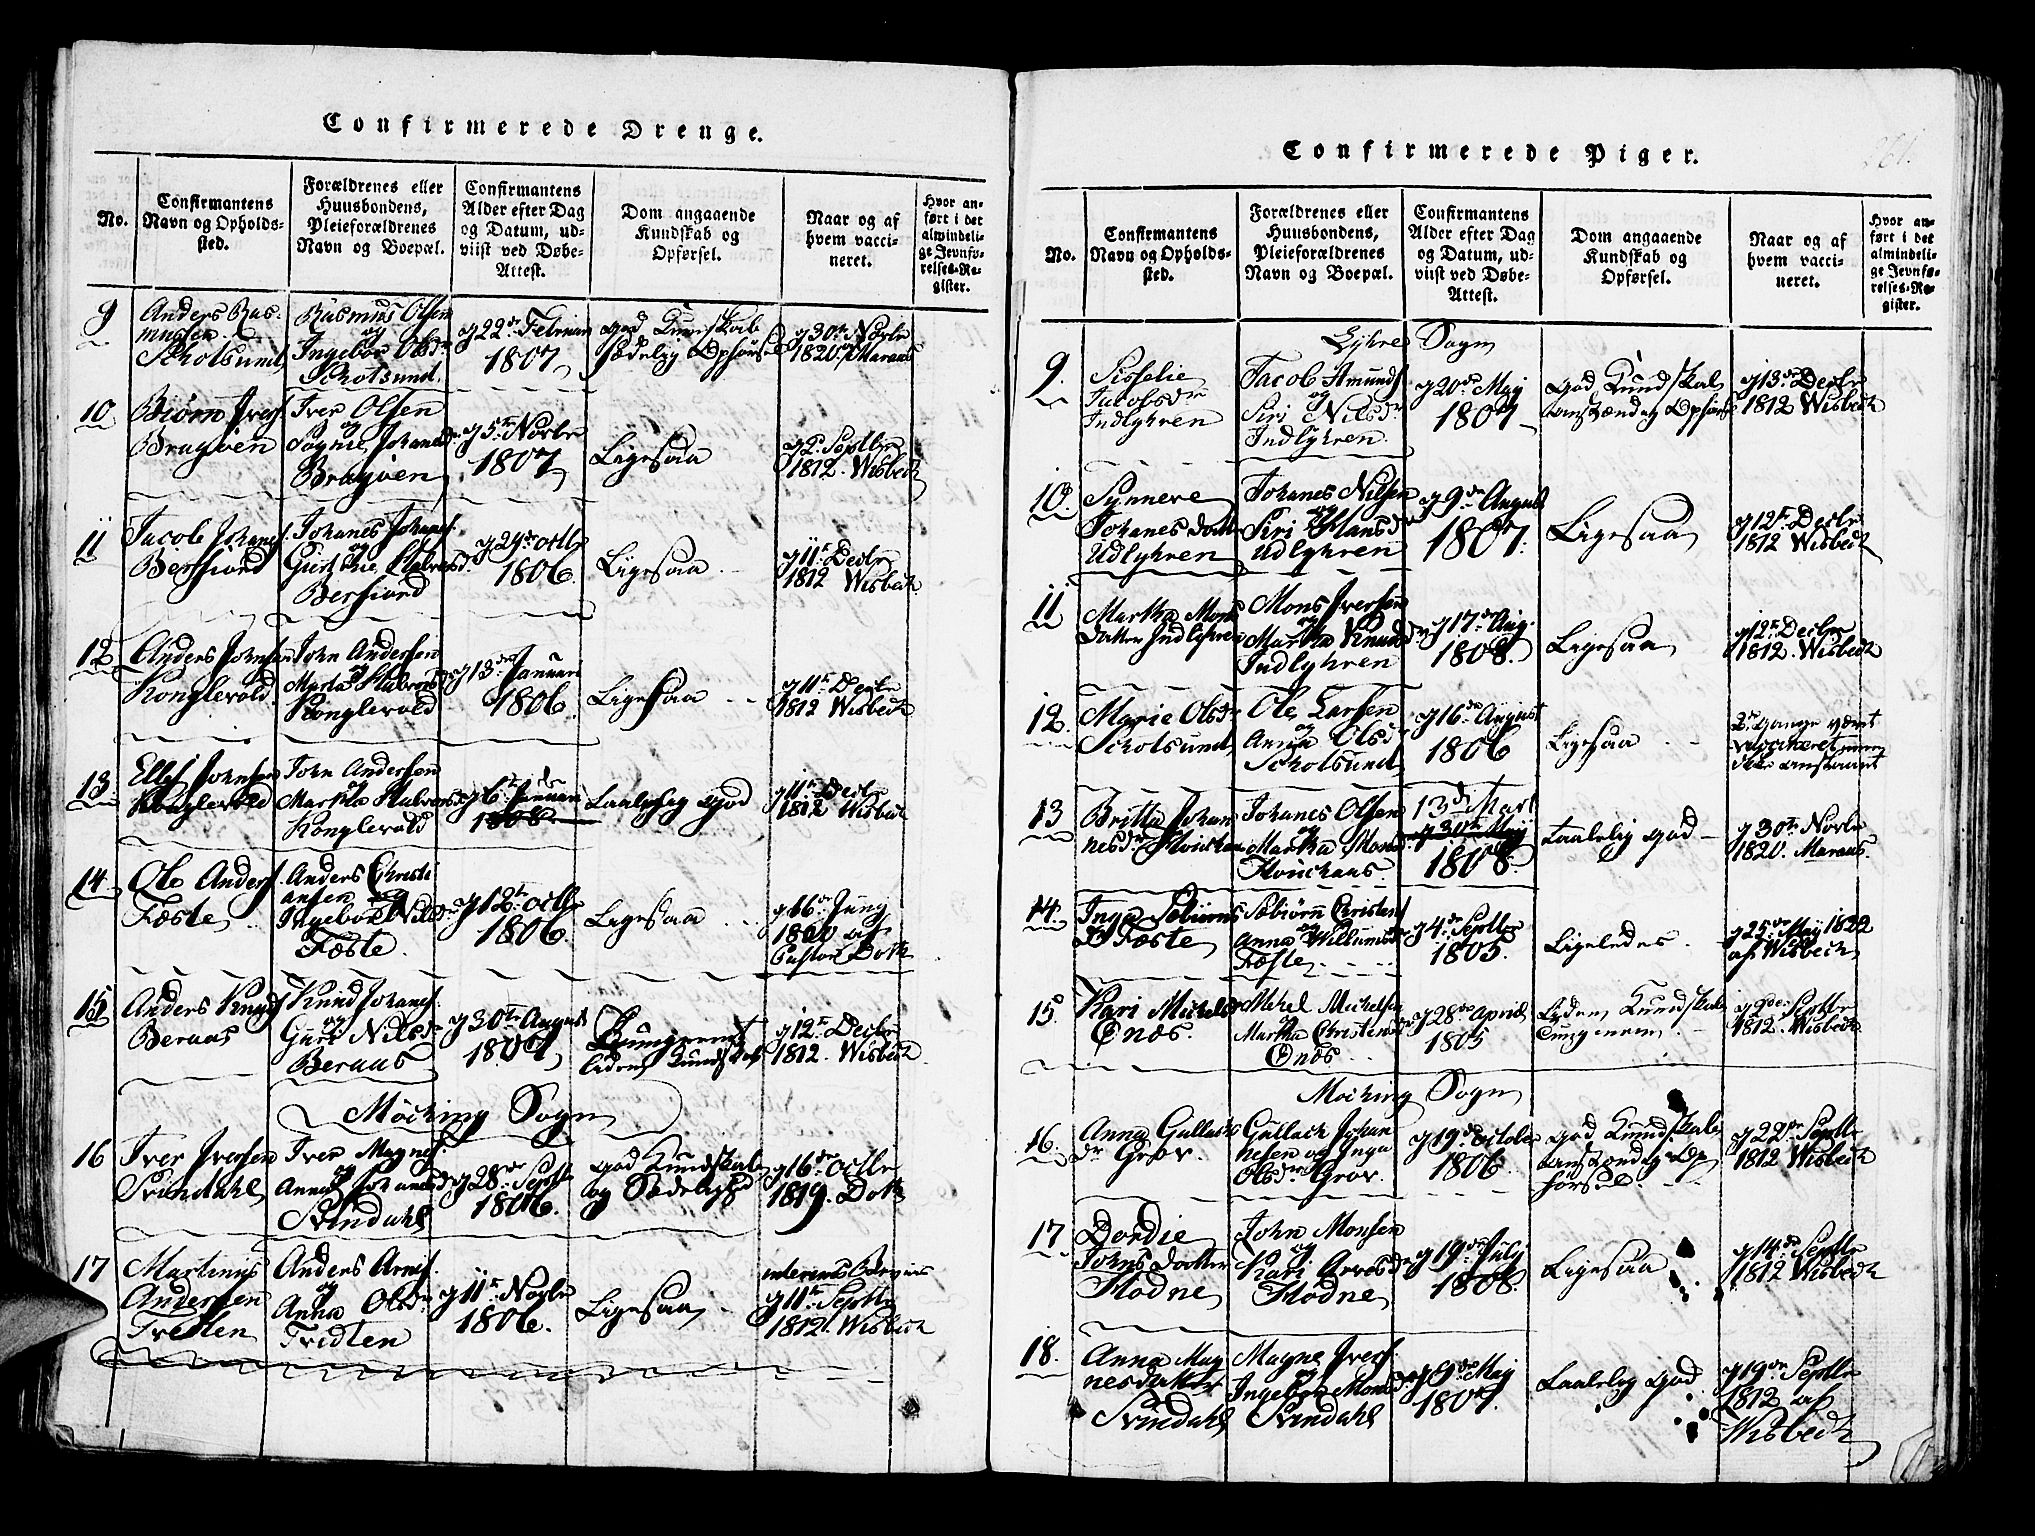 Confirmerede Drenge.
No.
Confirmantens
Navn og Opholds-
sted.
Forældrenes eller
Huusbondens,
Pleieforældrenes
Navn og Boepæl.
Confirmantens
Alder efter Dag
og Datum, ud-
viist ved Døbe-
Attest.
Dom angaaende
Kundskab og
Opførsel.
Naar og af
hvem vacci-
neret.
Hvor an-
ført i det
almindeli-
ge Jevnfø-
relses-Re-
gister.
9
Anders Ras-
musen
Schotsund
Rasmus Olsen
og
Ingebor Olsdr
Schotsund.
22de Februar
1807
god Kundskab
sædelig Opførsel
30te Novbr
1820 af Maraus
10
Biørn Ivers.
Bragven
Iver Olsen
og
Johansdr
Bragven
5te Novbr
1807
Ligesaa
2. Septbr
1812. Wisbech
11
Jacob Johans.
Berfiord
Johanes Johans.
og
Halvorsd.
Berfiord
24de octbr
1806.
Ligesaa
11te Decbr
1812 Wisbech
12
Anders Johnsen
Konglevold
John Andersen
og
Marta Halvorsd
Konglevold
13de Januari
1806.
Ligesaa
11te Decbr
1812 Wisbech
13
Ellef Johnsen
Konglevold
John Andersen
og
Martha Halvorsd
Konglevold
6te Januari
1808
Taalelig god
11te Decbr
1812 Wisbech
14
Ole Anders.
Fæste
Anders Christi
ansen og
Ingebor Nilsdr
Fæste.
12te octbr
1806.
Ligesaa
16de Juny
1820 af
Pastor Doth
15
Anders Knuds
Beraas
Knud Johans.
og
Guri Nilsd.
Beraas
30te August
1807
liden Kundskab
12te Decbr
1812. Wisbech
Möcking Sogn
16
Iver Iversen
Svindahl
Iver Magnes.
og
Anna Johannsd
Svindahl
28de Septb
1806.
god Kundskab
og Sædelighed
16de octbr
1819. Doth
17
Martinus
Andersen
Tredten
Anders Arnes.
og
Anna Olsdr
Tredten
11te Novbr
1806.
Ligesaa
11te Septbr
1812. Wisbech
Confirmerede Piger.
201.
No.
Confirmantens
Navn og Opholds-
sted.
Forældrenes eller
Huusbondens,
Pleieforældrenes
Navn og Boepæl.
Confirmantens
Alder efter Dag
og Datum, ud-
viist ved Døbe-
Attest.
Dom angaaende
Kundskab og
Opførsel.
Naar og af
hvem vacci-
neret.
Hvor an-
ført i det
almindeli-
ge Jevnfø-
relses-Re-
gister.
Lyhre Sogn
9.
Sisselie
Jacobsdr
Indlyhren
Jacob Amunds
og
Siri Nilsdr
Indlyhren.
20de May
1807
god Kundskab
anstændig Opførsel
13de Decbr
1812 Wisbech
10.
Synneve
Johanes datter
Udlyhren
Johanes Nilsen
og
Siri Hansdr
Udlyhren
9de August
1807.
Ligesaa
12te Decbr
1812 Wisbech
11
Martha Mons
datter Indlyhren
Mons Iversen
og
Martha Knudsdr
Indlyhren
17de Aug.
1808.
Ligesaa
12te Decbr
1812. Wisbech
12.
Marie Olsdr
Schotsund
Ole Larsen
og
Anna Olsdr
Schotsund
16de August
1806
Ligesaa
2de gange været
vaccineret men
ikke anslaaet
13
Britta Johan
nesdr
Johanes Olsen
og
Martha Monsd
13de Mart
30te May
1808.
Taalelig god
30te Novbr
1820. Maraus.
14.
Inga Sebiørns
dr Fæste
Sebiørn Christens
og
Anna Willumsdr
Fæste
4de Septbr
1805.
Ligeledes
25de May 1822
af Wisbech
15.
Kari Michels
Enæs.
Mihel Michelsen
og
Martha Christensdr
Enæs
28de April
1805
Liden Kundskab
2den Septbr
1812. Wisbech
Mocking Sogn
16.
Anna Gullachs
dr Grov.
Gullach Johan
nesen og Inga
Olsdr Grov.
19de October
1806.
god Kundskab
anstændig Op
førsel.
22de Septbr
1812 Wisbech
17
Dordie
Johns datter
Hodne
John Monsen
og
Kari Arnesdr
Hodne
19de July
1808.
Ligesaa
14de Septbr
1812 Wisbech
18.
Anna Mag
nesdatter
Svindahl
Magne Ivers.
og
Ingebor Monsdr
Svindahl
9de May
1807.
Taalelig god
19de Septbr
1812 af
Wisbech